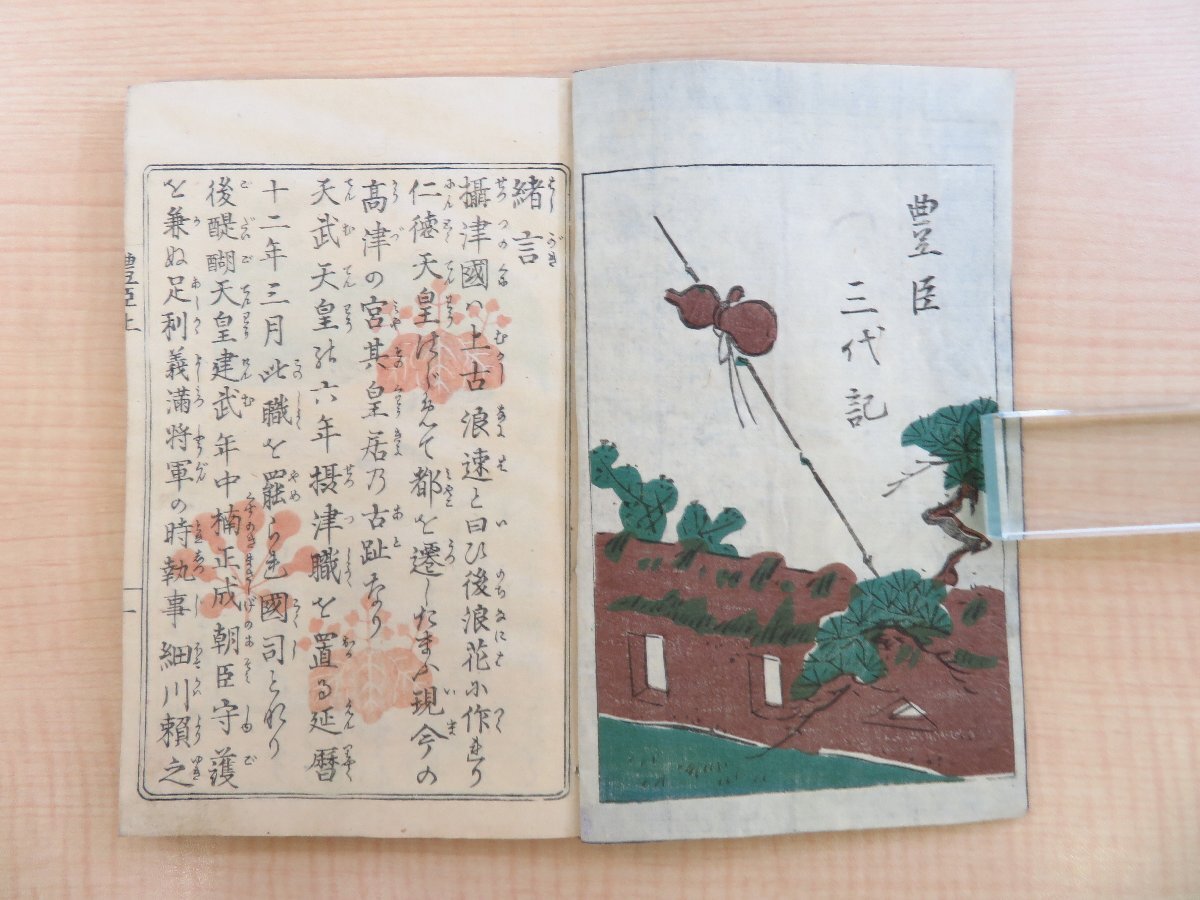 豊臣
三代記
緒言
攝津國ハ上古浪速と曰ひ後浪花に作れり
仁徳天皇はじめて都を遷したまふ現今の
高津の宮其皇居乃古趾なり
天武天皇の六年摂津職を置る延暦
十二年三月此職を罷られ國司となり
後醍醐天皇建武年中楠正成朝臣守護
を兼ぬ足利義滿將軍の時執事細川頼之
豊臣上
一